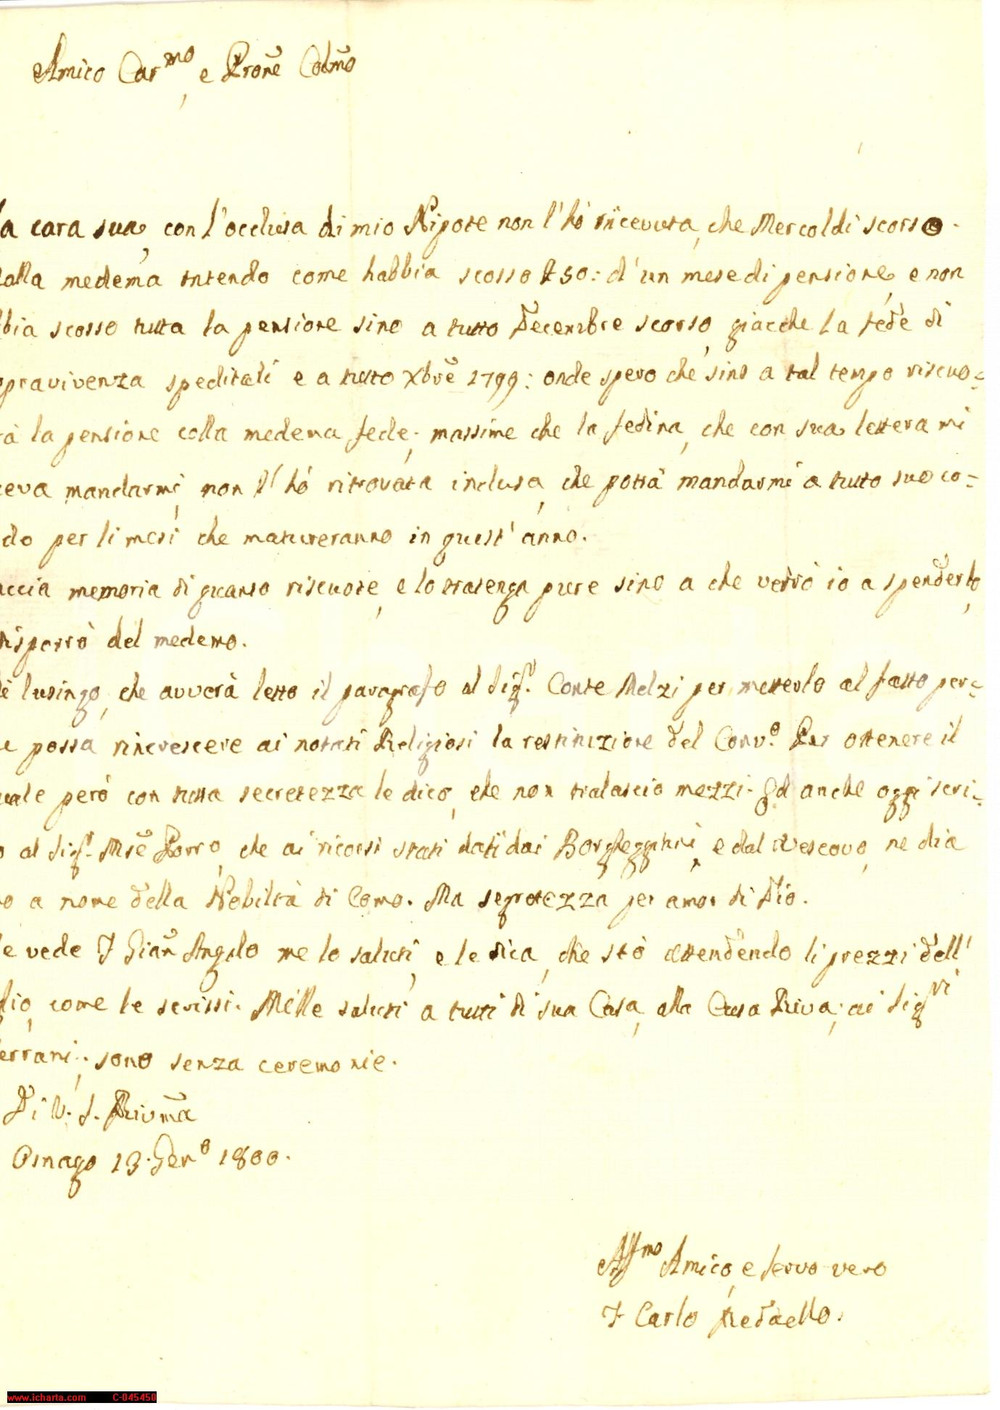 Amico Car.mo e Prone Colmo
la cara sua, con l'occlusa di mio Nipote non l'hò ricevuta, che Mercoldi scorso.
dalla medema intendo come habbia scosso £ 50: d'un mese di pensione, e non
bbia scosso tutta la pensione sino a tutto Decembre scorso, giacche la fede di
opravivenza speditali e a tutto Xbre 1799: onde spero che sino a tal tempo riscuo=
rà la pensione colla medema fede; massime che la fedina, che con sua lettera mi
ceva mandarmi, non l'hó ritrovata inclusa, che potrà mandarmi a tutto suo co=
do per li mesi che matureranno in quest'anno.
accia memoria di quanto riscuote, e lo tratenga pure sino a che verrò io a spenderlo,
disporrò del medemo.
lusingo, che avverà letto il paragrafo al Sig.r Conte Melzi per metterlo al fatto per=
possa rincrescere ai notati Religiosi la restituzione del Conv.o Per ottenere il
uale però con tutta secretezza le dico, che non tralascio mezzi. Ed anche oggi scri=
o al Sig.r Mse Porro, che ai ricorsi stati dati dai Borgheggiani, e dal Vescovo, ne dia
a nome della Nobiltà di Como. Ma segretezza per amor di Dio.
vede F Gian Angelo me lo saluti, e le dica, che stò attendendo li prezzi dell'
lio, come le scrissi. Mille saluti a tutti di sua Casa, alla Casa Riva; ai Sig.vi
errani; sono senza ceremonie.
Di V. S. Riv.ma
Ornago 13. Gen.o 1800.
Aff.mo Amico, e servo vero
F Carlo Redaello.
www.icharta.com C-045450